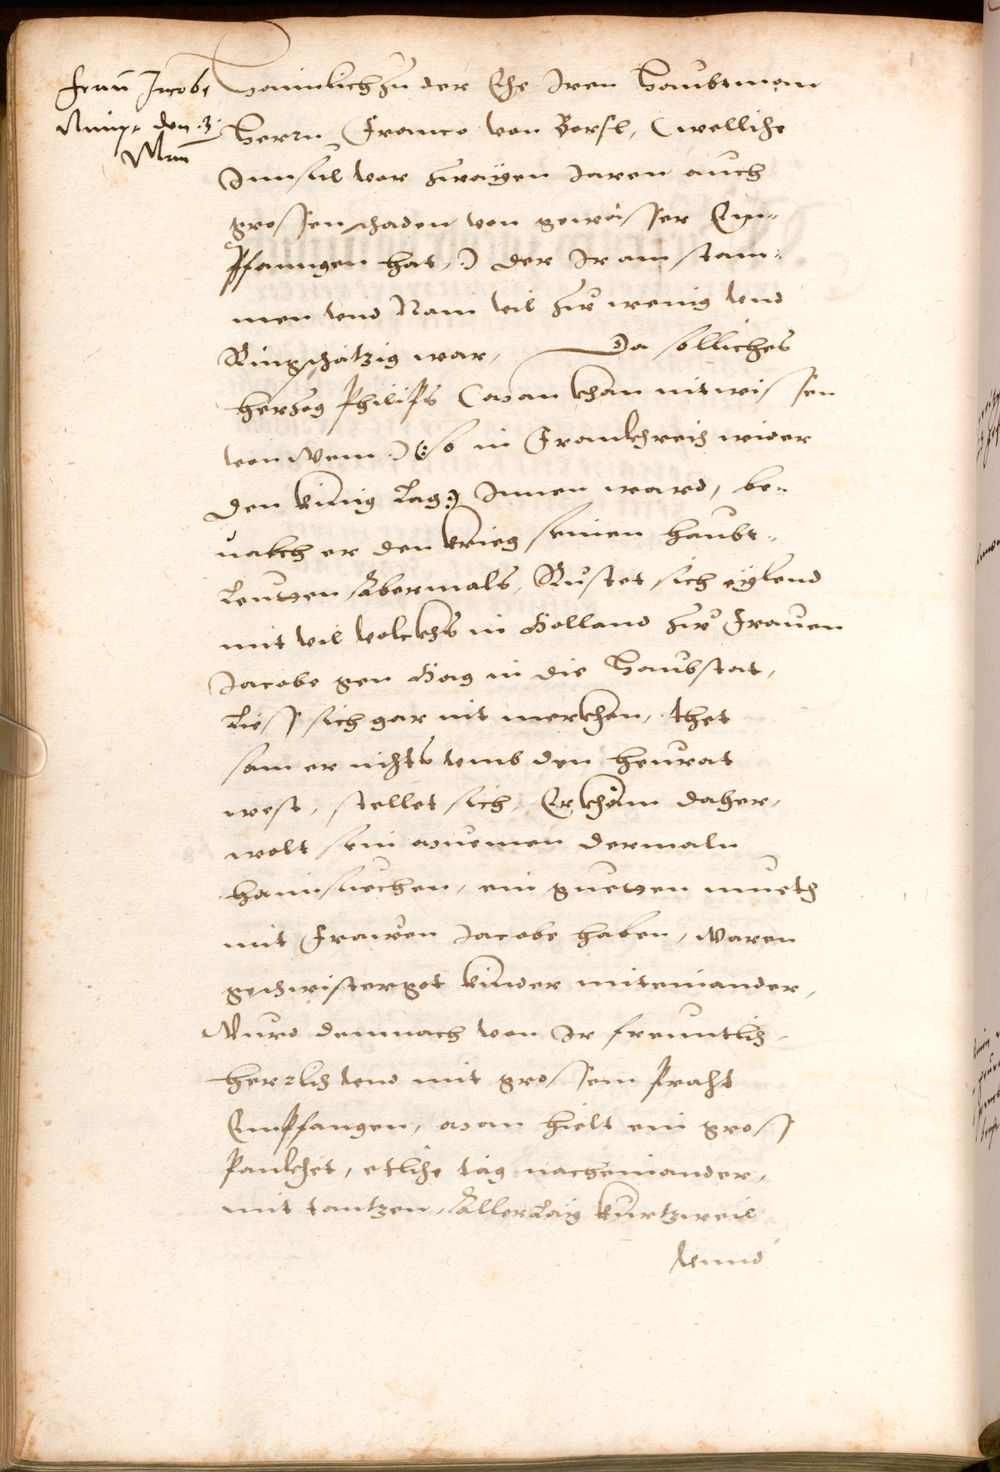 Frau Jacobe
Nimpt den .3.
Man
haimlich zu der Ehe Iren Haubtman
Herrn Franco von Borsl, (welliche
Innsul vor zwayen Jaren auch
grossen schaden von gewässer Em-
pfanngen hat,) der Ir am stam-
men vnd Nam vil zu wenig vnd
Ringschätzig war, Da solliches
herzog Philips (man khan nit wissen
von Wem:) (:so in Frankhreich wider
den künig lag:) Innen ward, be-
ualch er den krieg seinen haubt-
leutten Abermals, Rüstet sich eylend
mit vil volckhs in Holland zu Frauen
Jacobe gen Hag in die Haubstat,
Liess sich gar nit merckhen, thet
sam er nichts vmb den heurat
west, stellet sich, Er khäm daher,
wolt sein Muemen dermaln
haimsuechen, ein guetten mueth
mit Frawen Jacobe haben, Waren
geschwistergot kinder miteinander,
Wurd demnach von Ir freuntlich,
herrlich vnd mit grossem pracht
Empfangen, man hielt ein gross
Pankhet, etliche täg nacheinander,
mit tantzen, Allerlay kurtzweil
vnnd